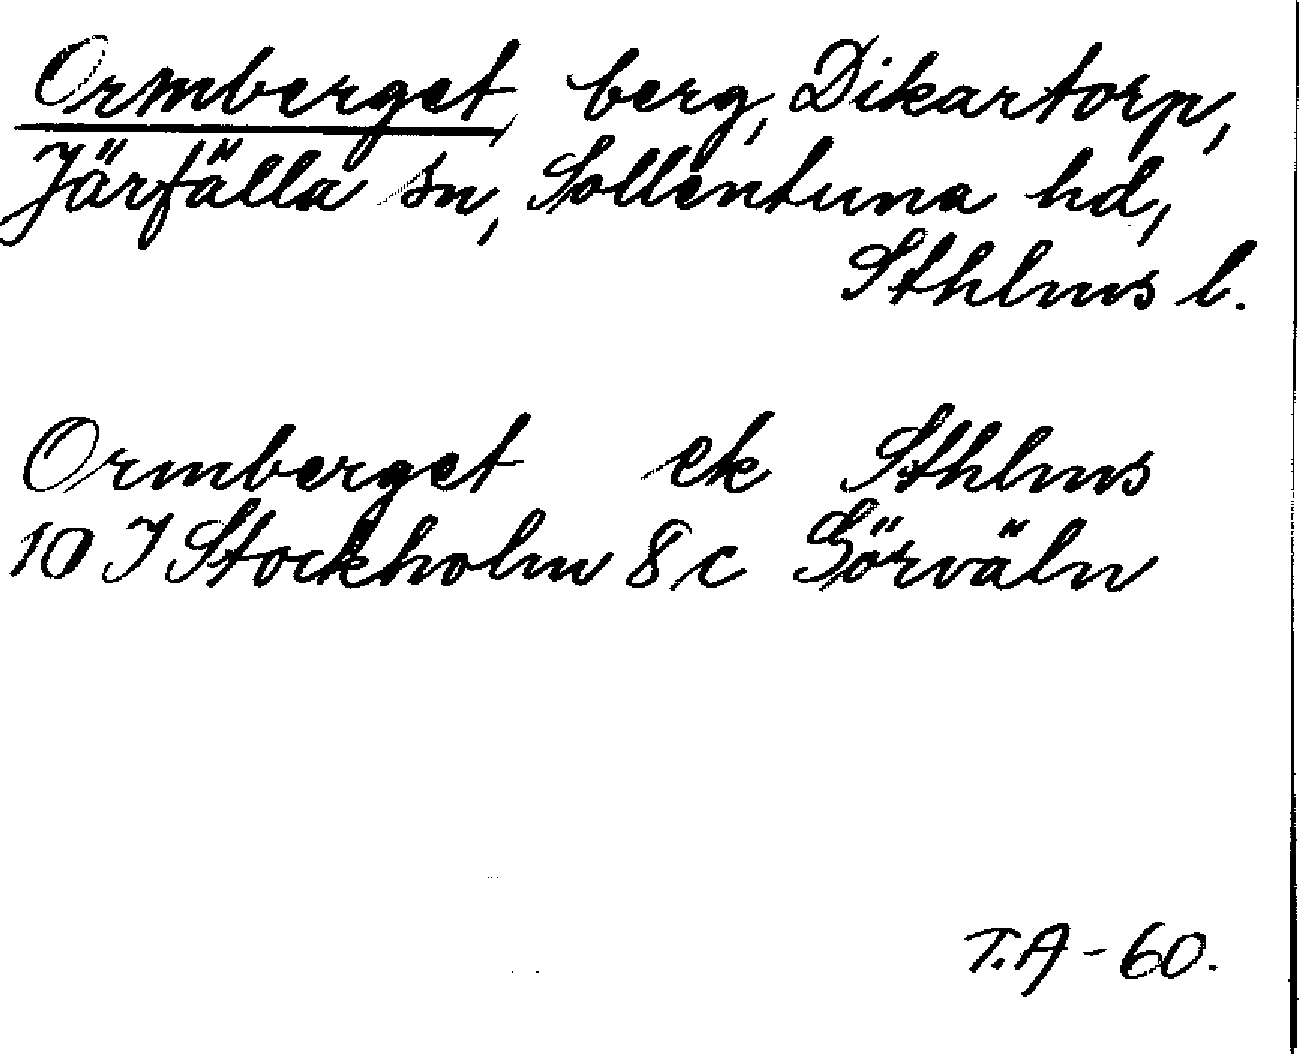 Ormberget, berg, Dikartorp,
Järfälla sn, Sollentuna hd,
Sthlms l.
Ormberget ek Sthlms
10 I Stockholm 8 c Görväln
T.A - 60.